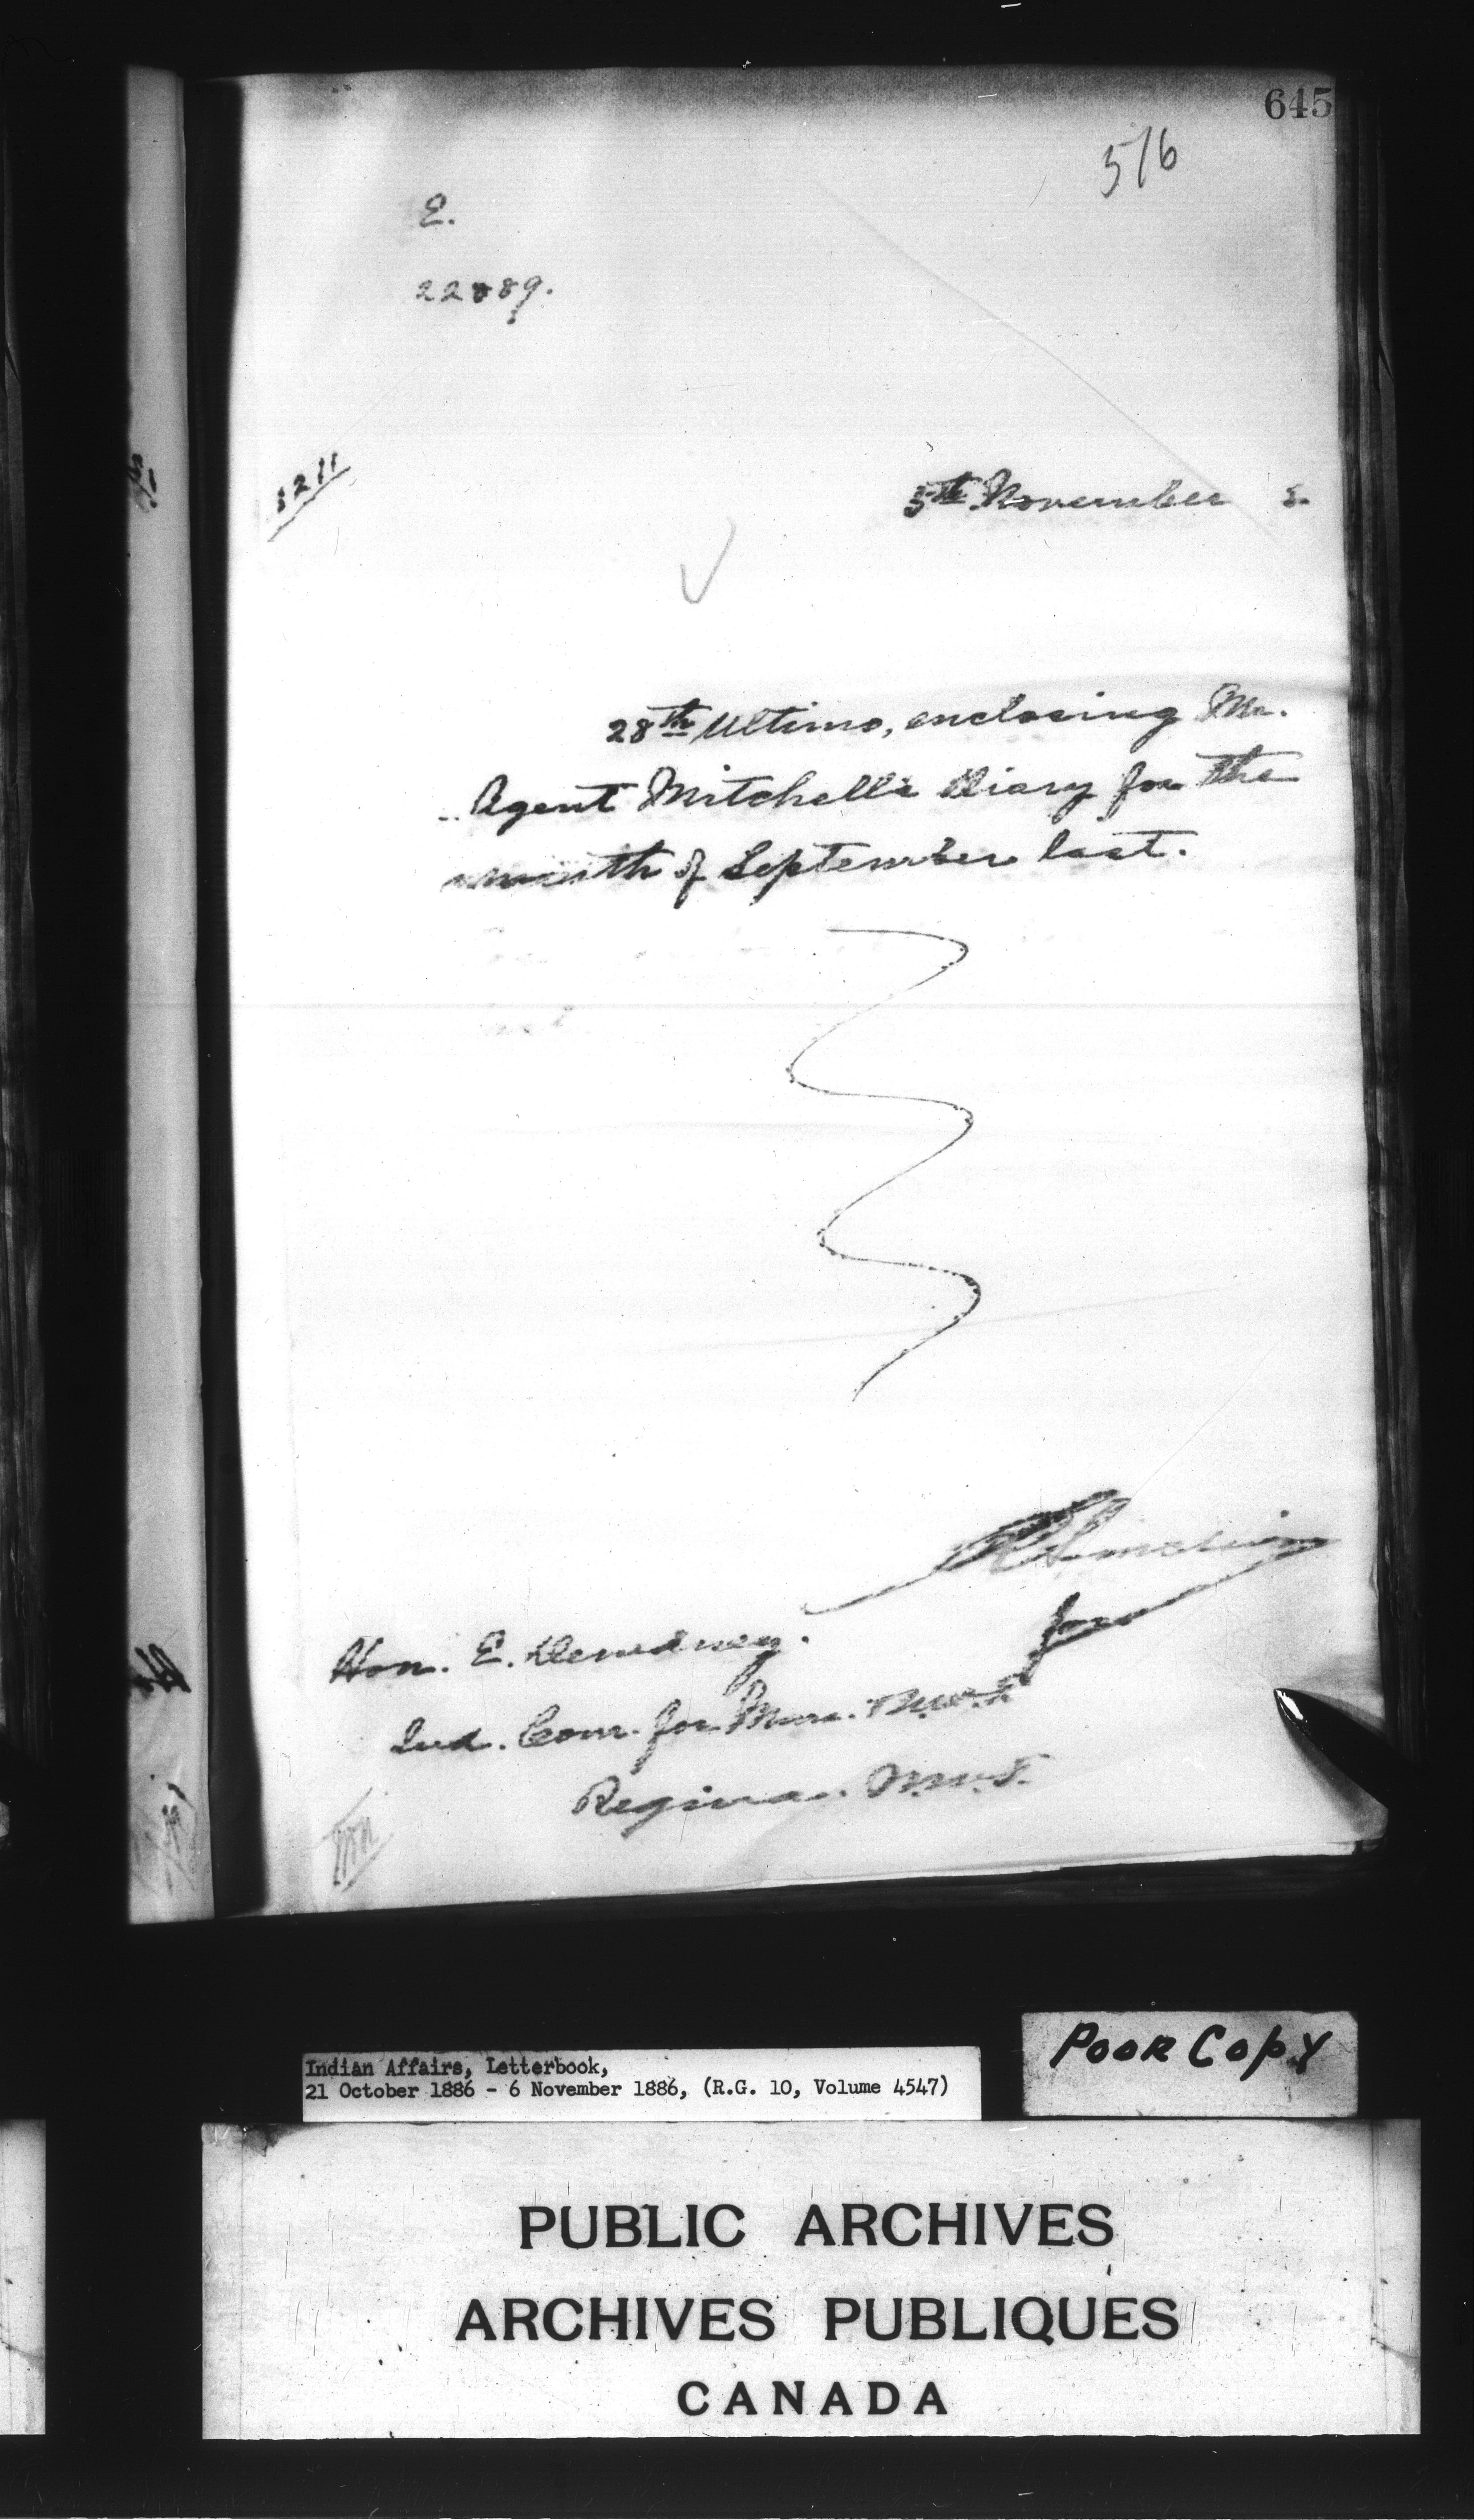 645
516
E.
22889.
1211
5th November 6.
28th Ultimo, enclosing Mr.
Agent Mitchell's Diary for the
month of September last.
for
Hon. E. Dewdney.
Ind. Comr. for Man. N.W.T.
Regina. N.W.T.
Poor Copy
Indian Affairs, Letterbook,
21 October 1886 - 6 November 1886, (R.G. 10, Volume 4547)
PUBLIC ARCHIVES
ARCHIVES PUBLIQUES
CANADA